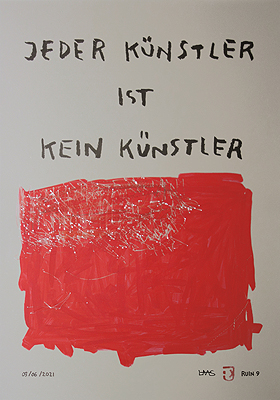 JEDER KÜNSTLER
IST
KEIN KÜNSTLER
03/06/2021
RUIN 9